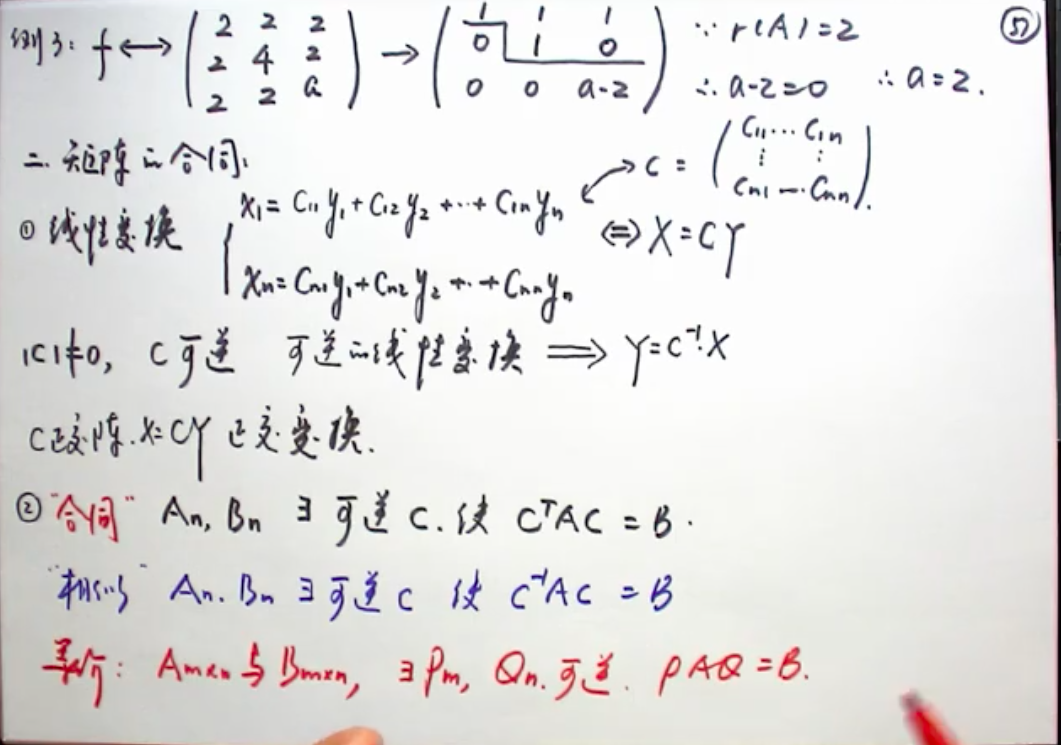 例3: f ↔ ( 2 2 2 ; 2 4 2 ; 2 2 a ) → ( 1 1 1 ; 0 1 0 ; 0 0 a-2 ) ∵ r(A)=2
∴ a-2=0 ∴ a=2.
57
二. 矩阵的合同:
① 线性变换 { x₁= C₁₁y₁+C₁₂y₂+⋯+C₁ₙyₙ
xₙ= Cₙ₁y₁+Cₙ₂y₂+⋯+Cₙₙyₙ
⇔ X=CY
C = ( C₁₁ ⋯ C₁ₙ ; ⋮ ⋮ ; Cₙ₁ ⋯ Cₙₙ ).
|C|≠0, C可逆 可逆的线性变换 ⟹ Y=C⁻¹·X
C正交阵. X=CY 正交变换.
② "合同" Aₙ, Bₙ ∃ 可逆 C. 使 CᵀAC = B.
"相似" Aₙ. Bₙ ∃ 可逆 C 使 C⁻¹AC = B
等价: Aₘₓₙ 与 Bₘₓₙ, ∃ Pₘ, Qₙ. 可逆. PAQ = B.